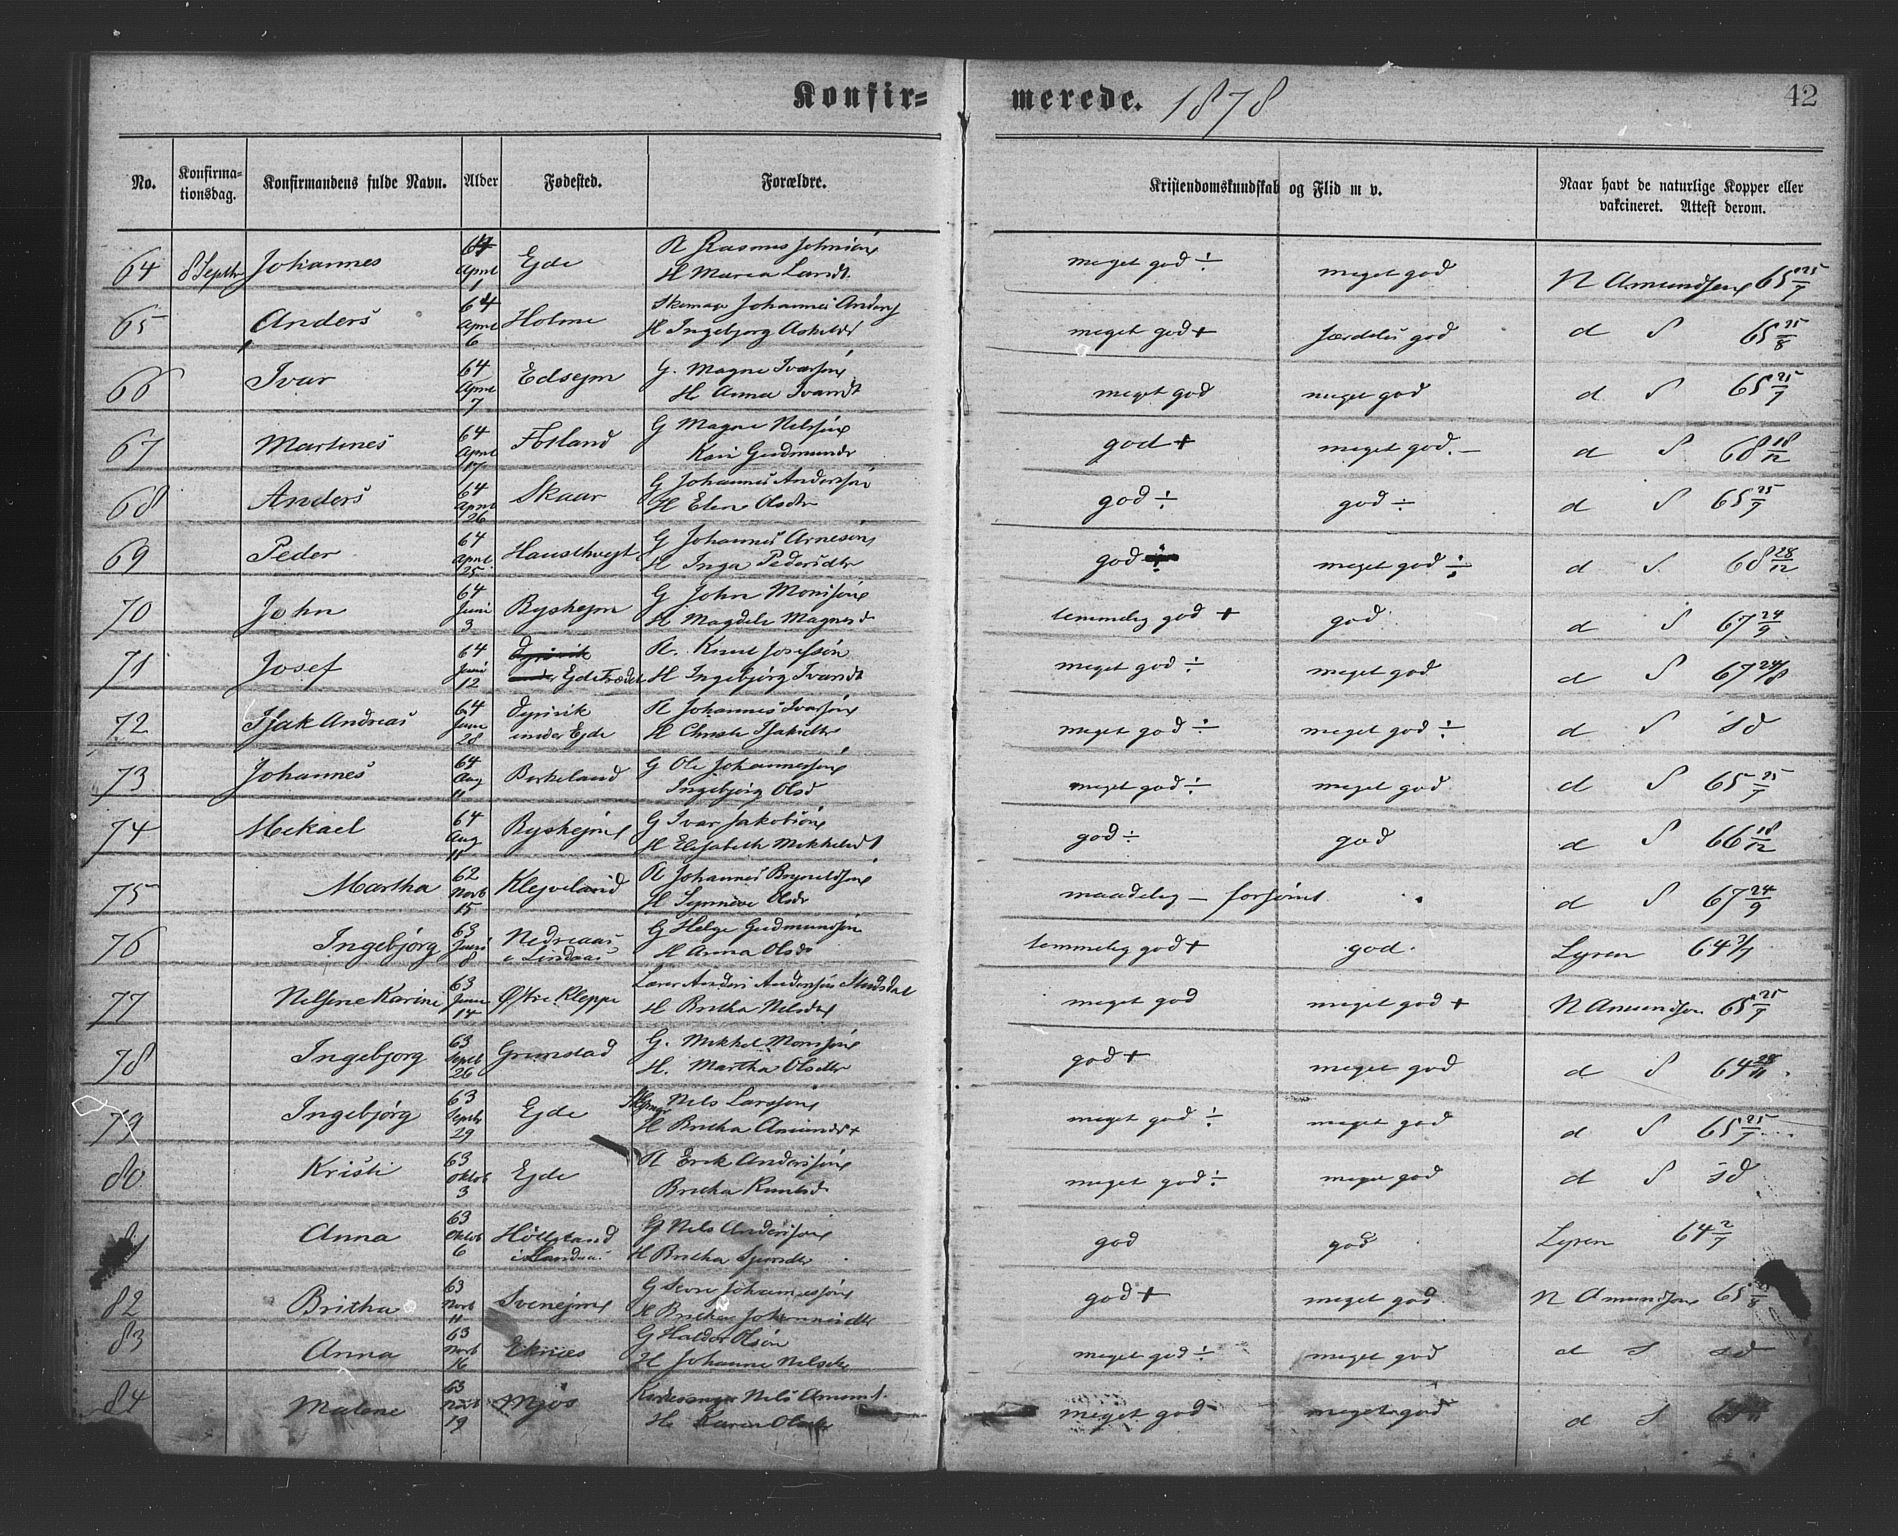 Konfir=merede. 1878
42
No. Konfirmationsdag. Konfirmandens fulde Navn. Alder Fødested. Forældre. Kristendomskundskab og Flid m v. Naar havt de naturlige Kopper eller vakcineret. Attest derom.
64 8 Septbr Johannes 64 April 1 Ejde R Rasmus Johnsøn H Maria Larsdt. meget god ÷ meget god N Amundsen 65 25/7
65 Anders 64 April 6 Holme Johannes Anders H Ingebjørg meget god + særdeles god d S 65 25/8
66 Ivar 64 April 7 Edsejm G. Magne Ivarsøn H Anna Ivarsdt meget god meget god d S 65 25/7
67 Martines 64 April 17 Fosland G Magne Nilssøn Kari Gudmunds god + meget god. – d S 68 18/12
68 Anders 64 April 26 Skaar G Johannes Anderssøn H Elen Olsdtr god ÷ god ÷ d S 65 25/7
69 Peder 64 April 25 G Johannes Arnesøn H Inga Pedersdtr god ÷ meget god ÷ d S. 68 28/12
70 John 64 Juni 3 Byshejm G John Monssøn H Magdele Magnesd temmelig god + god d S 67 24/9
71 Josef 64 Juni 12 Ejde R. Knud Josefsøn H Ingebjørg Ivarsdt meget god ÷ meget god d S 67 24/8
72 Isak Andreas 64 Juni 28 Dyrvik under Ejde R Johannes Ivarsøn H Christi Isaksdtr meget god ÷ meget god ÷ d S sd
73 Johannes 64 Aug 11 Birkeland G Ole Johannessøn Ingebjørg Olsd meget god ÷ meget god d S 65 25/7
74 Mekael 64 Aug 11 Byshejm G Ivar Jakobsøn H Elisabeth Mikkelsdt god ÷ god d S 66 18/12
75 Martha 62 Novb 15 Klejveland R Johannes Brynildsøn H Synneve Olsdr maadelig – forsømt d S 67 24/9
76 Ingebjørg 63 Juni 8 Nedreaas i Lindaas G Helge Gudmundsøn H Anna Olsdr temmelig god + god. Lyren 64 2/7
77 Nilsine Karine 63 Juni 14 Øvre Kleppe Lærer Anders Andersøn Studsdal H Britha Nilsdtr meget god meget god + N Amundsen 65 25/7
78 Ingebjorg 63 Septb 26 Grimstad G. Mikkel Monssøn H. Martha Olsdtr god + meget god d S 64 28/11
79 Ingebjørg 63 Septbr 29 Ejde Nils Larssøn H Britha Amundsdt meget god ÷ meget god d S 65 25/7
80 Kristi 63 Oktob 3 Ejde R Erik Anderssøn Britha Knutsd meget god ÷ meget god d S sd
Anna 63 Oktob 6 G Nils Anderssøn H Britha god god Lyren 64 2/7
82 Britha 63 Novb 11 Svenejm G Johannessøn H Britha Johannesdtr god + meget god N Amundsen 65 /8
83 Anna 63 Novb 16 Eknes G Haldor Olsøn H Johanne Nilsdtr meget god ÷ meget god d S sd
84 Malene 63 Novb 19 Mjøs Kirkesanger Nils Amundt H. Karen Olsdtr meget god meget god d S